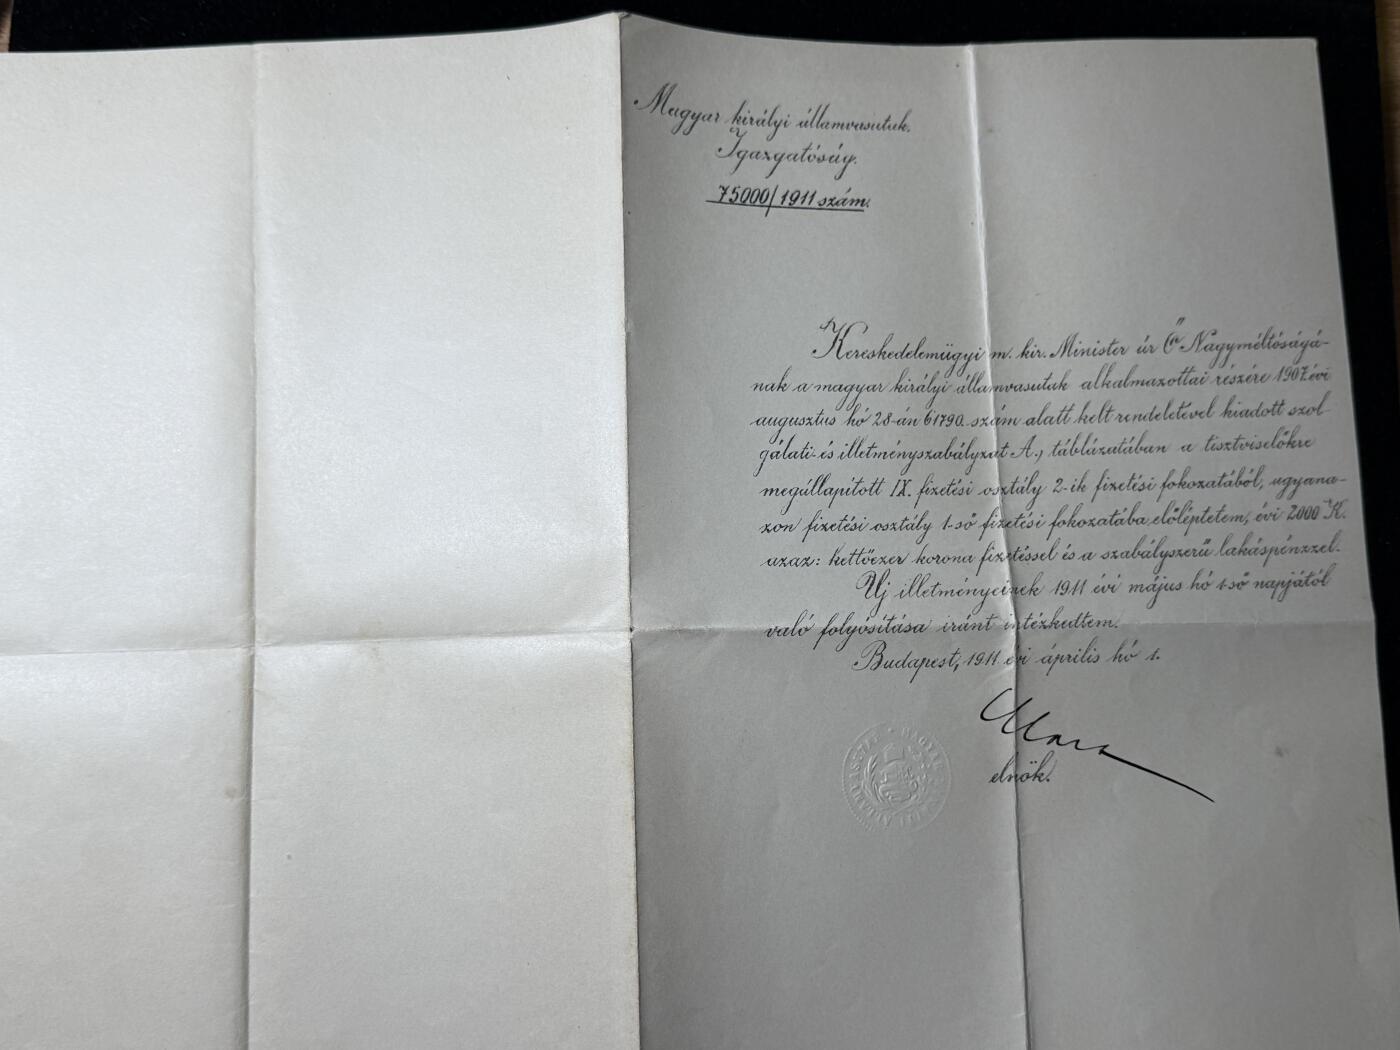 Magyar királyi államvasutak.
Igazgatóság.
75000/1911 szám.
Kereskedelemügyi m. kir. Minister úr Ő Nagyméltóságá-
nak a magyar királyi államvasutak alkalmazottai részére 1907. évi
augusztus hó 28-án 61790. szám alatt kelt rendeletével kiadott szol-
gálati- és illetményszabályzat A., táblázatában a tisztviselőkre
megállapított IX. fizetési osztály 2-ik fizetési fokozatából, ugyana-
zon fizetési osztály 1-ső fizetési fokozatába előléptetem, évi 2000 K.
azaz: kettőezer korona fizetéssel és a szabályszerű lakáspénzzel.
Uj illetményeinek 1911 évi május hó 1-ső napjától
való folyósítása iránt intézkedtem.
Budapest, 1911 évi április hó 1.
elnök.